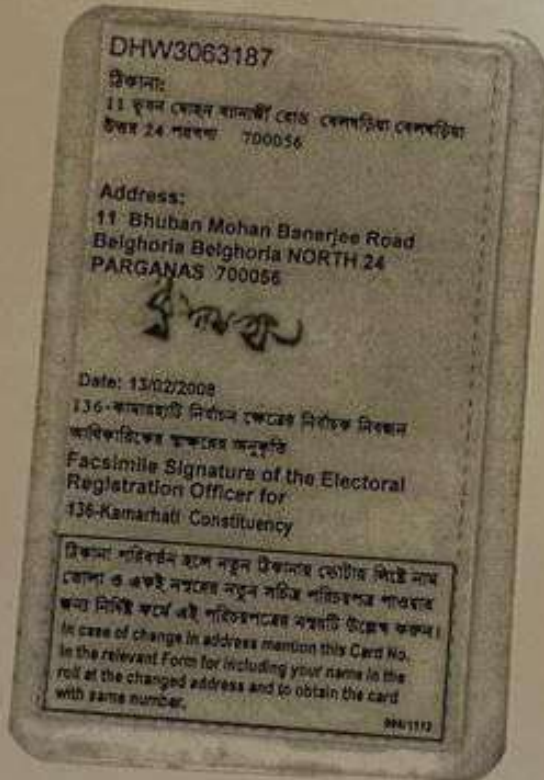 DHW3063187
ঠিকানা:
11 ভুবন মোহন ব্যানার্জী রোড বেলঘড়িয়া বেলঘড়িয়া
উত্তর 24 পরগণা 700056
Address:
11 Bhuban Mohan Banerjee Road
Belghoria Belghoria NORTH 24
PARGANAS 700056
Date: 13/02/2008
136-কামারহাটি নির্বাচন ক্ষেত্রের নির্বাচক নিবন্ধন
আধিকারিকের স্বাক্ষরের অনুকৃতি
Facsimile Signature of the Electoral
Registration Officer for
136-Kamarhati Constituency
ঠিকানা পরিবর্তন হলে নতুন ঠিকানায় ভোটার লিষ্টে নাম
তোলা ও একই নম্বরের নতুন সচিত্র পরিচয়পত্র পাওয়ার
জন্য নির্দিষ্ট ফর্মে এই পরিচয়পত্রের নম্বরটি উল্লেখ করুন।
In case of change in address mention this Card No.
in the relevant Form for including your name in the
roll at the changed address and to obtain the card
with same number.